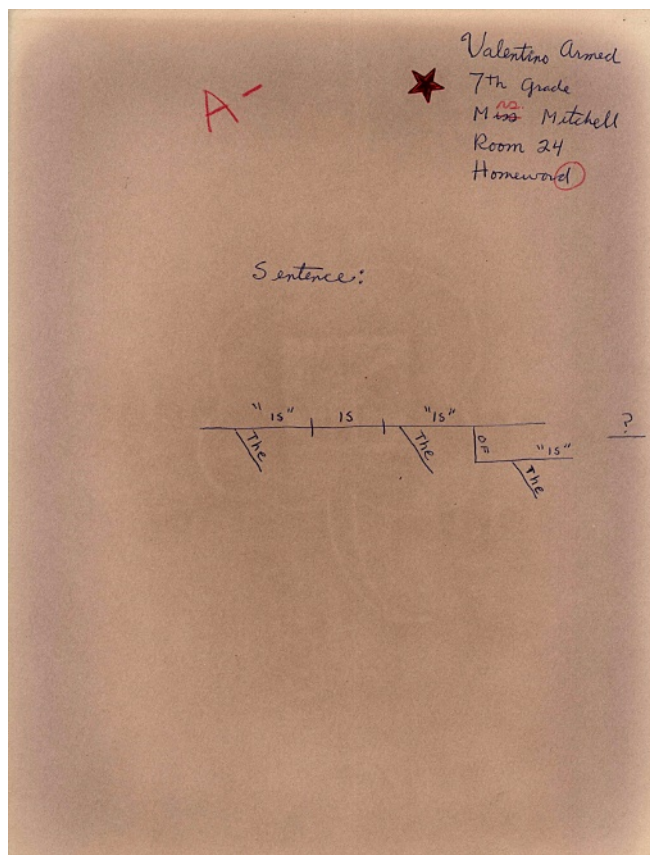 Valentino Armed
A-
7th Grade
rs.
Miss Mitchell
Room 24
Homeword
Sentence:
"IS" IS "IS" ?
The The OF "IS"
The